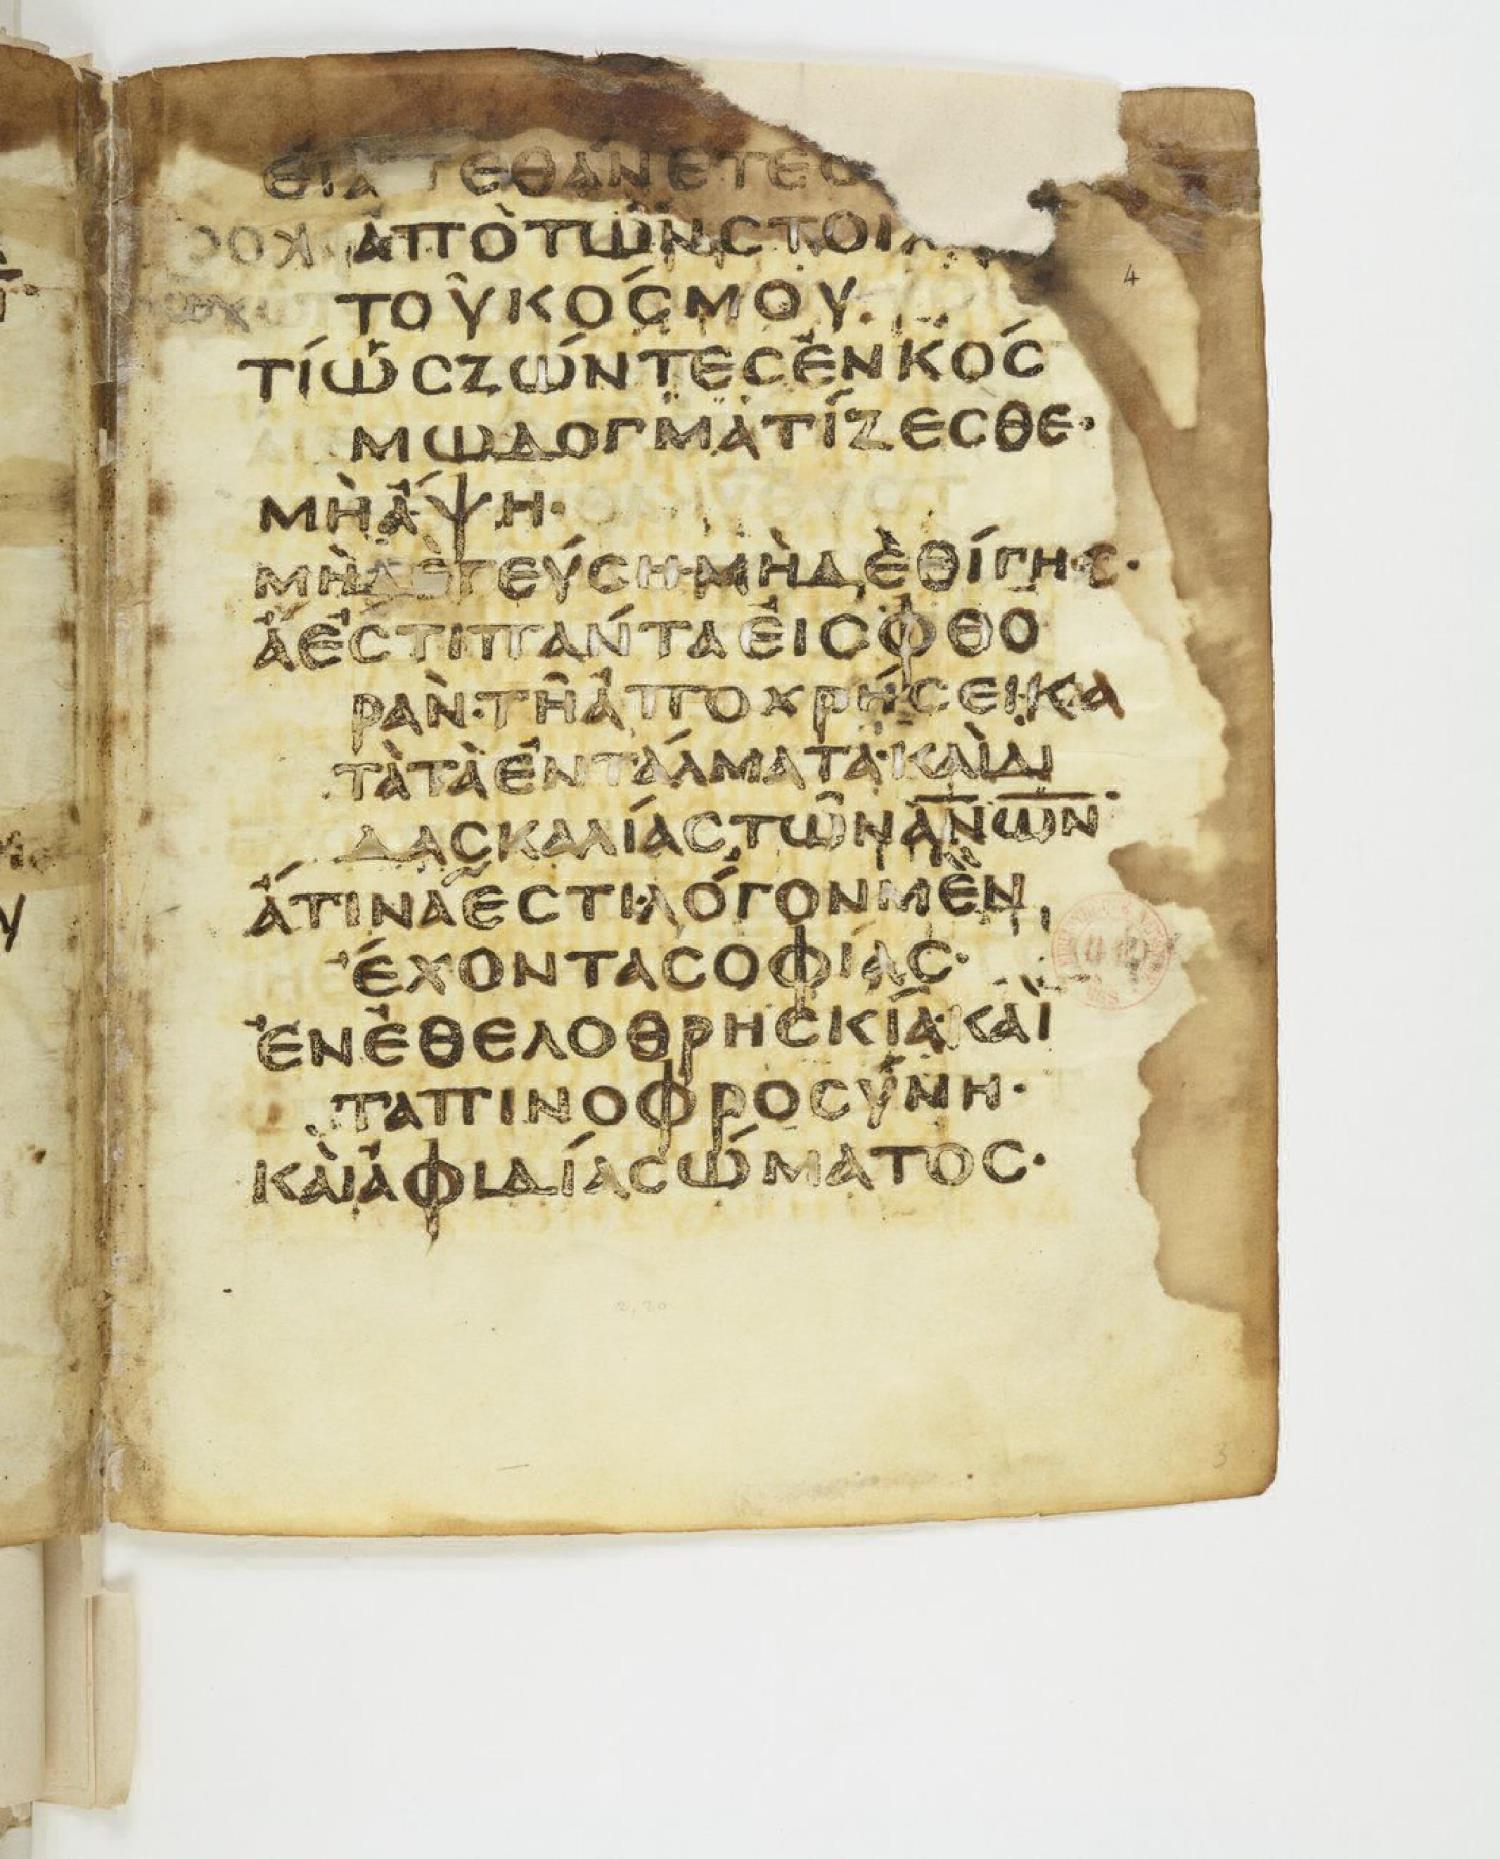 ΕΙΑ ΤΕΘΑΝΕΤΕ
ἈΠῸΤῶΝϹΤΟΙ
ΤΟῦΚΌϹΜΟΥ.
ΤΊὩϹΖΏΝΤΕϹἘΝΚΌϹ
ΜΩΔΟΓΜΑΤΊΖΕϹΘΕ·
ΜῊἍΨΗ·
ΜῊΔῈΓΕΎϹΗ·ΜῊΔῈΘΊΓΗϹ·
ἍἘϹΤΙΠΑΝΤΑἘΙϹΦΘΟ
ΡᾺΝ·Τῆἀποχρήϲει·ΚΑ
ΤᾺΤᾺἘΝΤΆΛΜΑΤΑ·ΚΑῚΔΙ
ΔΑϹΚΑΛΊΑϹΤῶΝΑ̅Ν̅Ω̅Ν̅·
ἍΤΙΝΑἘϹΤΙ·ΛΌΓΟΝΜῈΝ
ἜΧΟΝΤΑϹΟΦΊΑϹ·
ἘΝἘΘΕΛΟΘΡΗϹΚΊΑ·ΚΑῚ
ΤΑΠΙΝΟΦΡΟϹΎΝΗ·
ΚΑῚἈΦΙΔΊΑϹΏΜΑΤΟϹ·
4
3